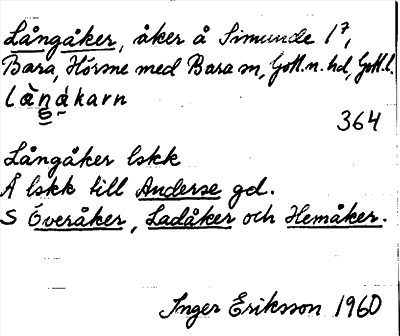 Långåker, åker å Simunde 1⁷,
Bara, Hörsne med Bara sn, Gotl. n. hd, Gotl. l.
låŋákarn
364
Långåker lskk
Å lskk till Anderse gd.
S Överåker, Ladåker och Hemåker.
Inger Eriksson 1960